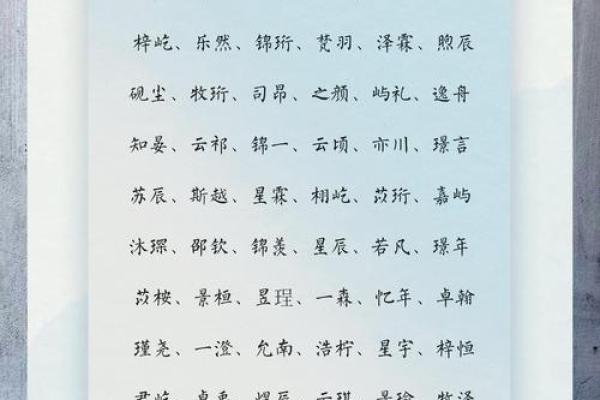 梓屹、乐然、锦珩、梵羽、泽霖、煦辰
砚尘、牧珩、司昂、之颜、屿礼、逸舟
知晏、云祁、锦一、云顷、亦川、璟言
苏辰、斯越、星霖、栩屹、苡珩、嘉屿
沐琛、邵钦、锦羡、星辰、若凡、璟年
苡桉、景桓、昱珵、一森、忆年、卓翰
瑾尧、一澄、允南、浩柠、星宇、梓恒
君屹、卓禹、煜辰、云琪、景瑜、牧泽